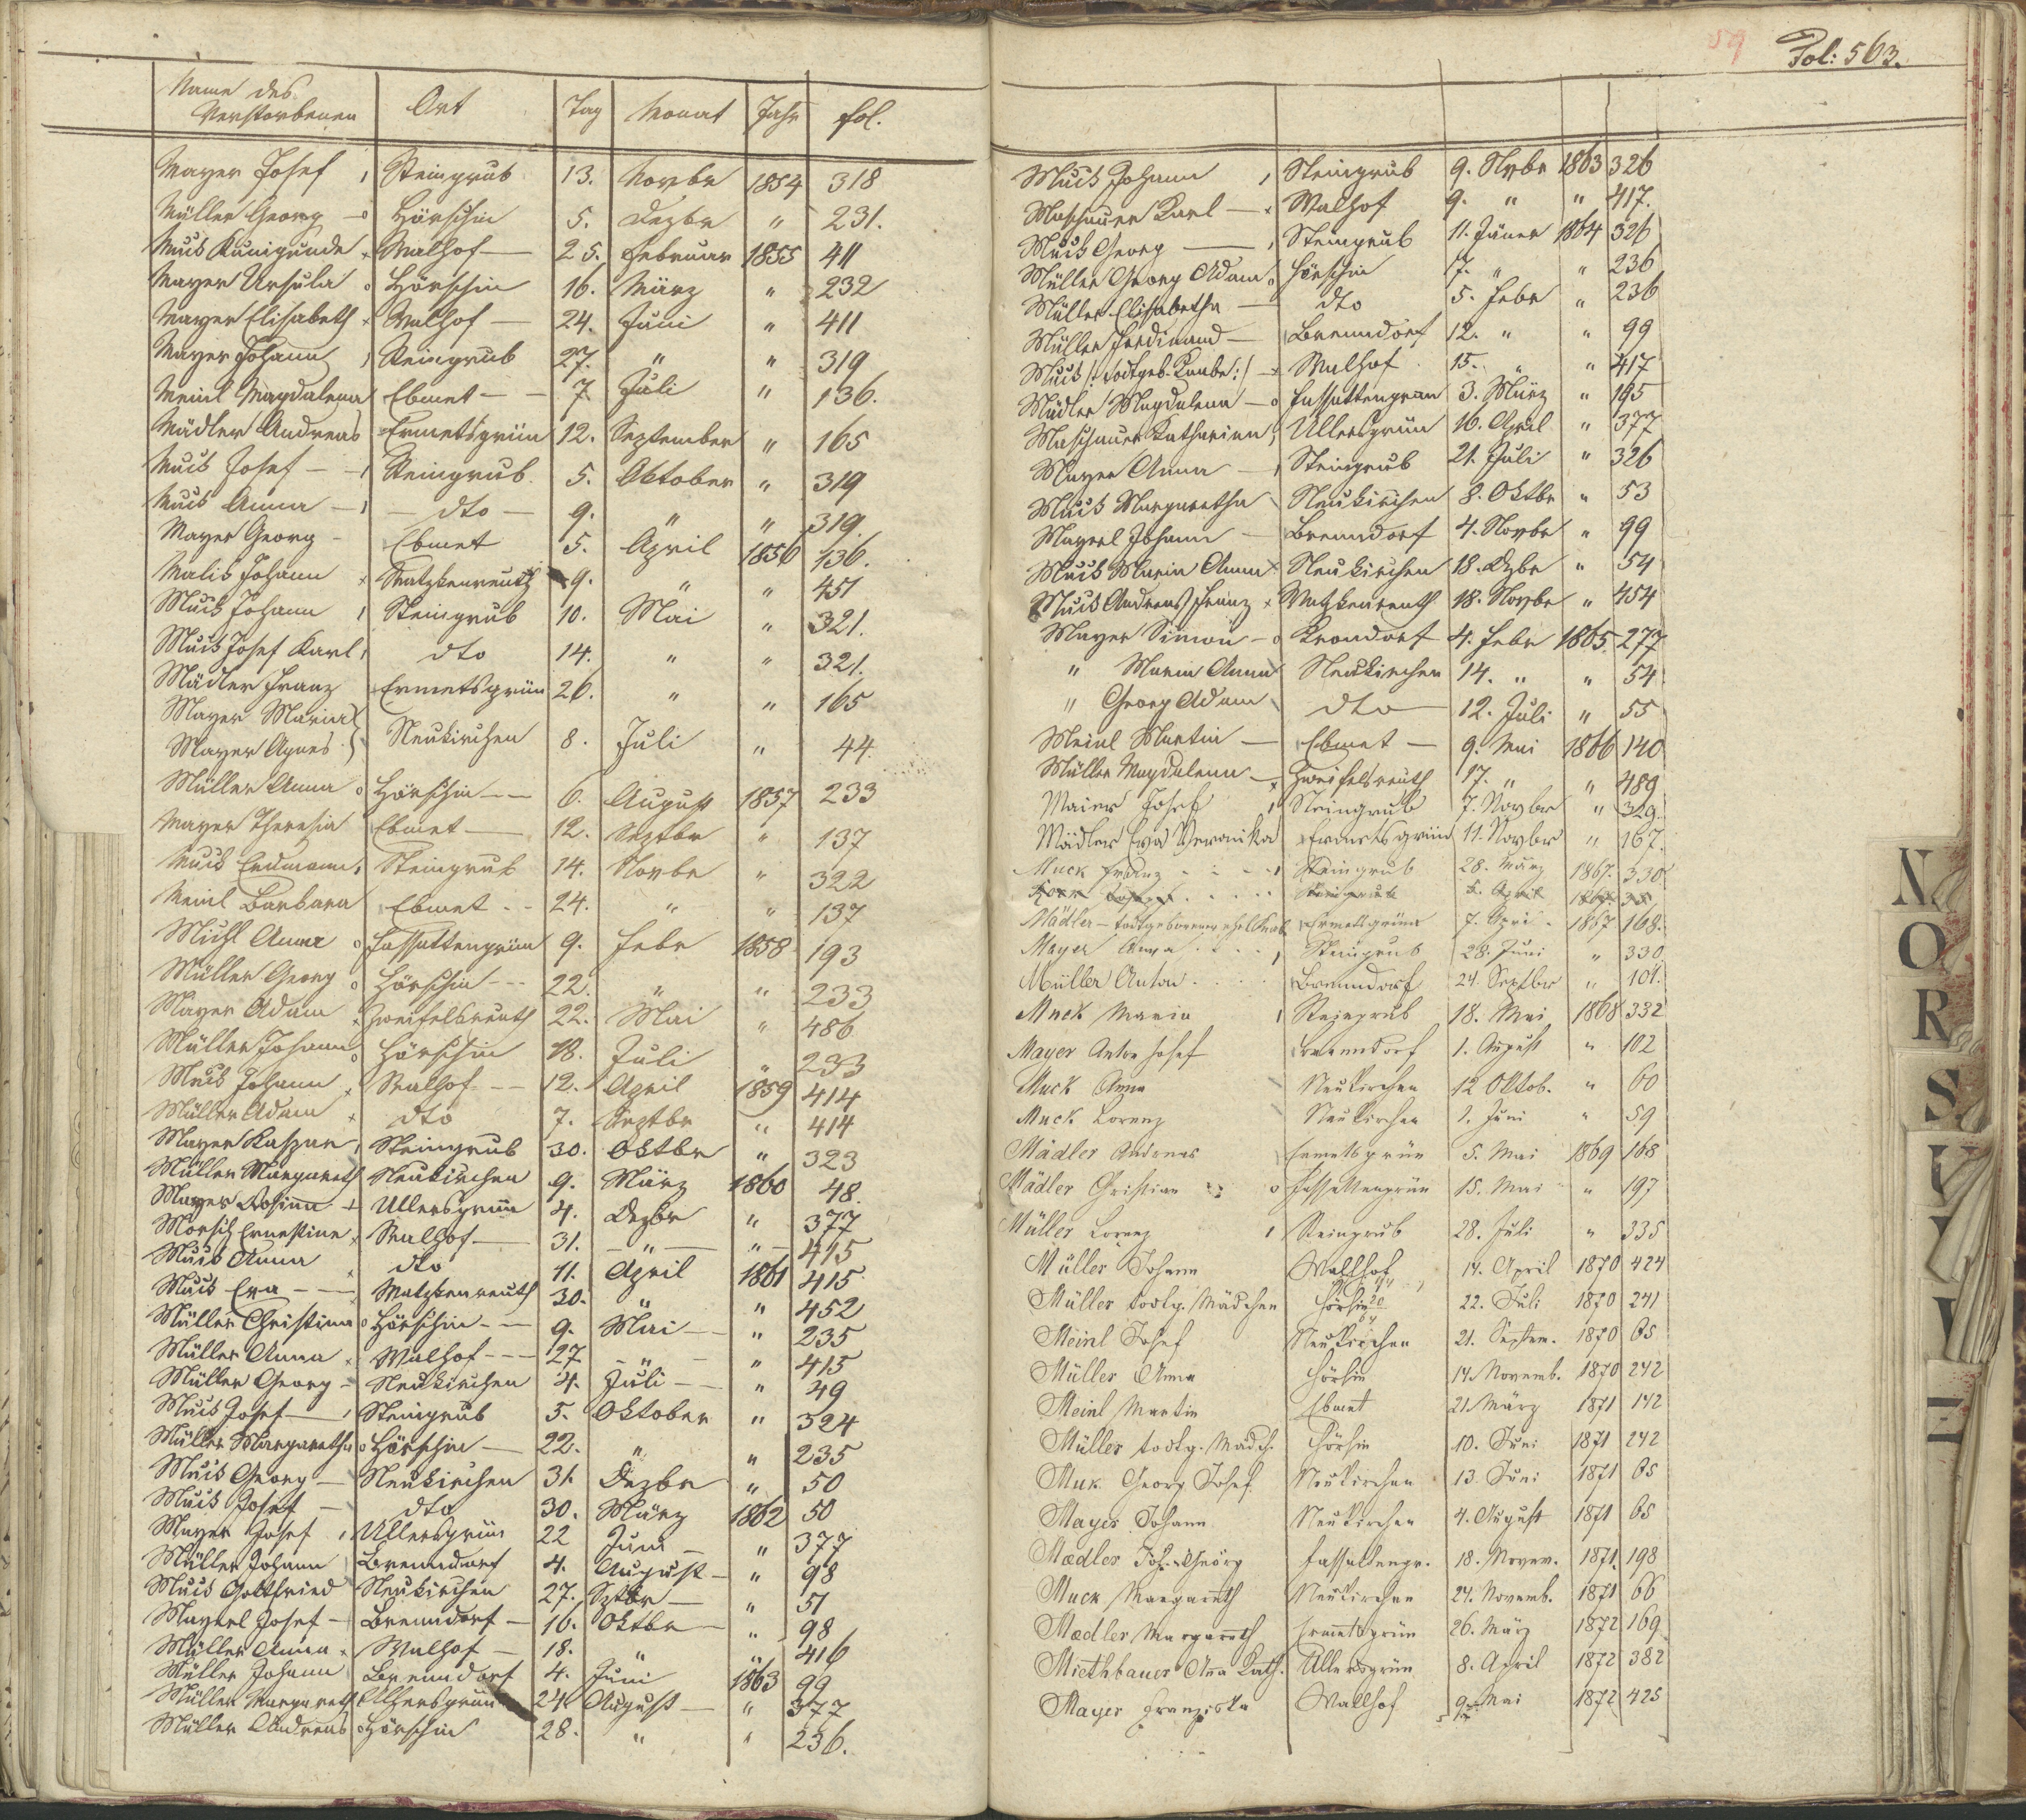 Name des Verstorbenen Ort Tag Monat Jahr fol.
Mayer Josef Steingrub 13. Novbr 1854 318
Müller Georg Hörschin 5. Dezbr " 231.
Muck Kunigunde Walhof 25. Februar 1855 411
Mayer Ursula Hörschin 16. März " 232
Mayer Elisabeth Walhof 24. Juni " 411
Mayer Johann Steingrub 27. " " 319
Meinl Magdalena Ebmet 7. Juli " 136.
Mädler Andreas Ermetsgrün 12. September " 165
Muck Josef Steingrub 5. Oktober " 319
Muck Anna dto 9. " " 319.
Mayer Georg Ebmet 5. April 1856 136.
Malik Johann Watzkenreuth 9. " " 451
Muck Johann Steingrub 10. Mai " 321.
Muck Josef Karl dto 14. " " 321.
Mädler Franz Ermetsgrün 26. " " 165
Mayer Maria }
Mayer Agnes } Neukirchen 8. Juli " 44.
Müller Anna Hörschin 6. August 1857 233
Mayer Theresia Ebmet 12. Septbr " 137
Muck Erdmann Steingrub 14. Novbr " 322
Meinl Barbara Ebmet 24. " " 137
Anna Fassattengrün 9. Febr 1858 193
Müller Georg Hörschin 22. " " 233
Mayer Adam Zweifelsreuth 22. Mai " 486
Müller Johann Hörschin 18. Juli " 233
Muck Johann Walhof 12. April 1859 414
Müller Adam dto 7. Septbr " 414
Mayer Kaspar Steingrub 30. Oktbr " 323
Müller Margareth Neukirchen 9. März 1860 48.
Mayer Rosina Ullersgrün 4. Dezbr " 377
Ernestine Walhof 31. " " 415
Muck Anna dto 11. April 1861 415
Muck Eva Watzkenreuth 30. " " 452
Müller Christina Hörschin 9. Mai " 235
Müller Anna Walhof 27 " " 415
Müller Georg Neukirchen 4. Juli " 49
Muck Josef Steingrub 5. Oktober " 324
Müller Margaretha Hörschin 22. " " 235
Muck Georg Neukirchen 31. Dezbr " 50
Muck Josef dto 30. März 1862 50
Mayer Josef Ullersgrün 22 Juni " 377
Müller Johann Brenndorf 4. August " 98
Muck Gottfried Neukirchen 27. Sptbr " 51
Mayerl Josef Brenndorf 16. Oktbr " 98
Müller Anna Walhof 18. " " 416
Müller Johann Brenndorf 4. Juni 1863 99
Müller Margareth Ullersgrün 24. August " 377
Müller Andreas Hörschin 28. " " 236.
59 Fol: 563.
Muck Johann Steingrub 9. Novbr 1863 326
Maschauer Karl Walhof 9. " " 417.
Muck Georg Steingrub 11. Jäner 1864 326
Müller Georg Adam Hörschin 17. " " 236
Müller Elisabetha dto 5. Febr " 236
Müller Ferdinand Brenndorf 12. " " 99
Muck /: Todtgeb. Knabe :/ Walhof 15. " " 417
Mädler Magdalena Fassattengrün 3. März " 195
Maschauer Katharina Ullersgrün 16. April " 377
Mayer Anna Steingrub 21. Juli " 326
Muck Margaretha Neukirchen 8. Oktbr " 53
Mayerl Johann Brenndorf 4. Novbr " 99
Muck Maria Anna Neukirchen 18. Dzbr " 54
Muck Andreas Franz Watzkenreuth 18. Novbr " 454
Mayer Simon Krondorf 4. Febr 1865. 277
" Maria Anna Neukirchen 14. " " 54
" Georg Adam dto 12. Juli " 55
Meinl Martin Ebmet 9. Mai 1866 140
Müller Magdalena Zweifelsreuth 17. " " 489
Maier Josef Steingrub 7. Novbr " 329.
Mädler Eva Veronika Ermetsgrün 11. Novbr " 167.
Muck Franz Steingrub 28. März 1867. 330
Steingrub 5. April 1867
Mädler - todtgeborener ehel Knab Ermetsgrün 7. April 1867 168.
Mayer Anna Steingrub 28. Juni " 330
Müller Anton Brenndorf 24. Septbr " 101.
Muck Maria Steingrub 18. Mai 1868 332
Mayer Anton Josef Brenndorf 1. August " 102
Muck Anna Neukirchen 12 Oktob. " 60
Muck Lorenz Neukirchen 1. Juni " 59
Mädler Andreas Ermetsgrün 5. Mai 1869 168
Mädler Christian Fassattengrün 15. Mai " 197
Müller Lorenz Steingrub 28. Juli " 335
Müller Johann Wallhof 14. April 1870 424
Müller todtg. Mädchen Hörschin 22. Juli 1870 241
Meinl Josef Neukirchen 21. Septem. 1870 65
Müller Anna Hörsin 14. Novemb. 1870 242
Meinl Martin Ebmet 21 März 1871 142
Müller todtg. Mädch. Hörsin 10. Juni 1871 242
Muk Georg Josef Neukirchen 13. Juni 1871 65
Mayer Johann Neukirchen 4. August 1871 65
Mædler Joh. Georg Fassattengr. 18. Novem. 1871. 198
Muck Margareth Neukirchen 24. Novemb. 1871 66
Mædler Margareth Ermetsgrün 26. März 1872 169
Miethbauer Ana Kath. Ullersgrün 8. April 1872 382
Mayer Franziska Wallhof 9 Mai 1872 425
N
O
R
S